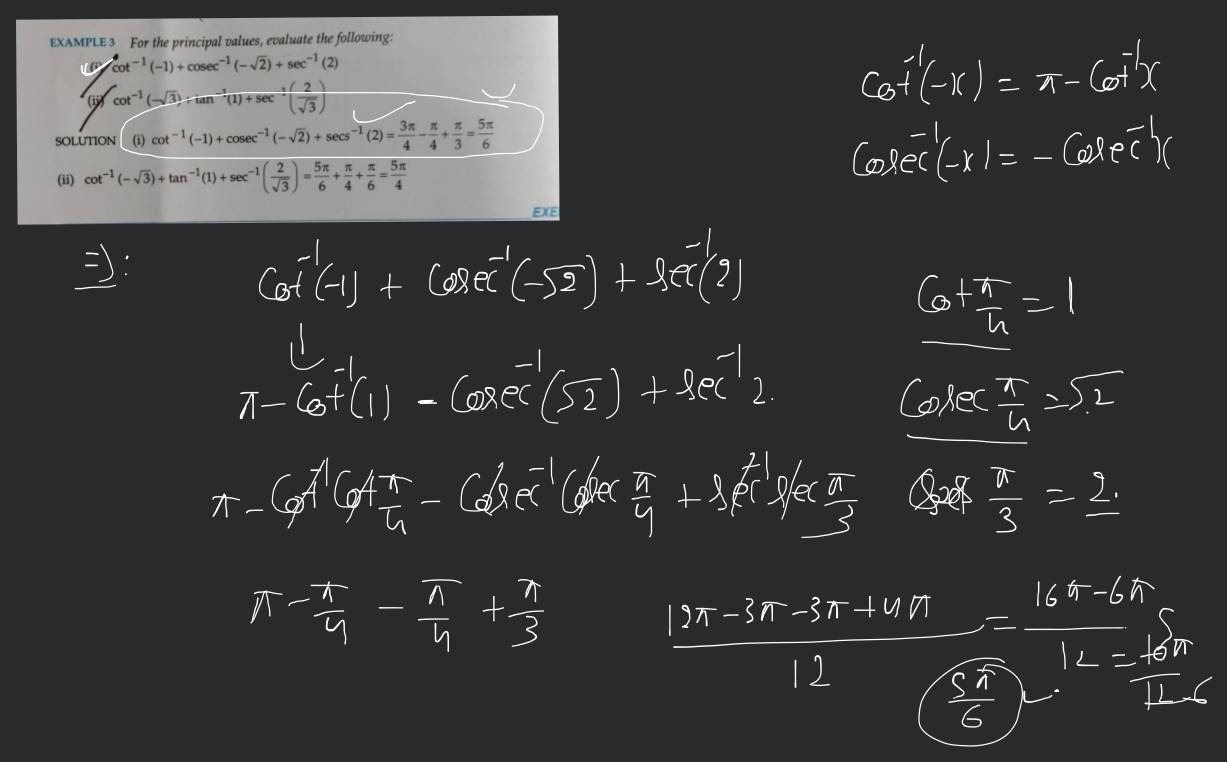 EXAMPLE 3 For the principal values, evaluate the following:
(i) cot⁻¹ (−1) + cosec⁻¹ (−√2) + sec⁻¹ (2)
(ii) cot⁻¹ (−√3) + tan⁻¹(1) + sec⁻¹ (2/√3)
SOLUTION (i) cot⁻¹ (−1) + cosec⁻¹ (−√2) + secs⁻¹ (2) = 3π/4 − π/4 + π/3 = 5π/6
(ii) cot⁻¹ (−√3) + tan⁻¹(1) + sec⁻¹ (2/√3) = 5π/6 + π/4 + π/6 = 5π/4
EXE
Cot⁻¹(-x) = π - Cot⁻¹x
Cosec⁻¹(-x) = - Cosec⁻¹x
⇒: Cot⁻¹(-1) + Cosec⁻¹(-√2) + Sec⁻¹(2)
Cot π/4 = 1
π - Cot⁻¹(1) - Cosec⁻¹(√2) + Sec⁻¹ 2.
Cosec π/4 = √2
π - Cot⁻¹ Cot π/4 - Cosec⁻¹ Cosec π/4 + Sec⁻¹ Sec π/3
π/3 = 2.
π - π/4 - π/4 + π/3
(12π - 3π - 3π + 4π)/12 = (16π - 6π)/12 = 10π/12 5 6
5π/6